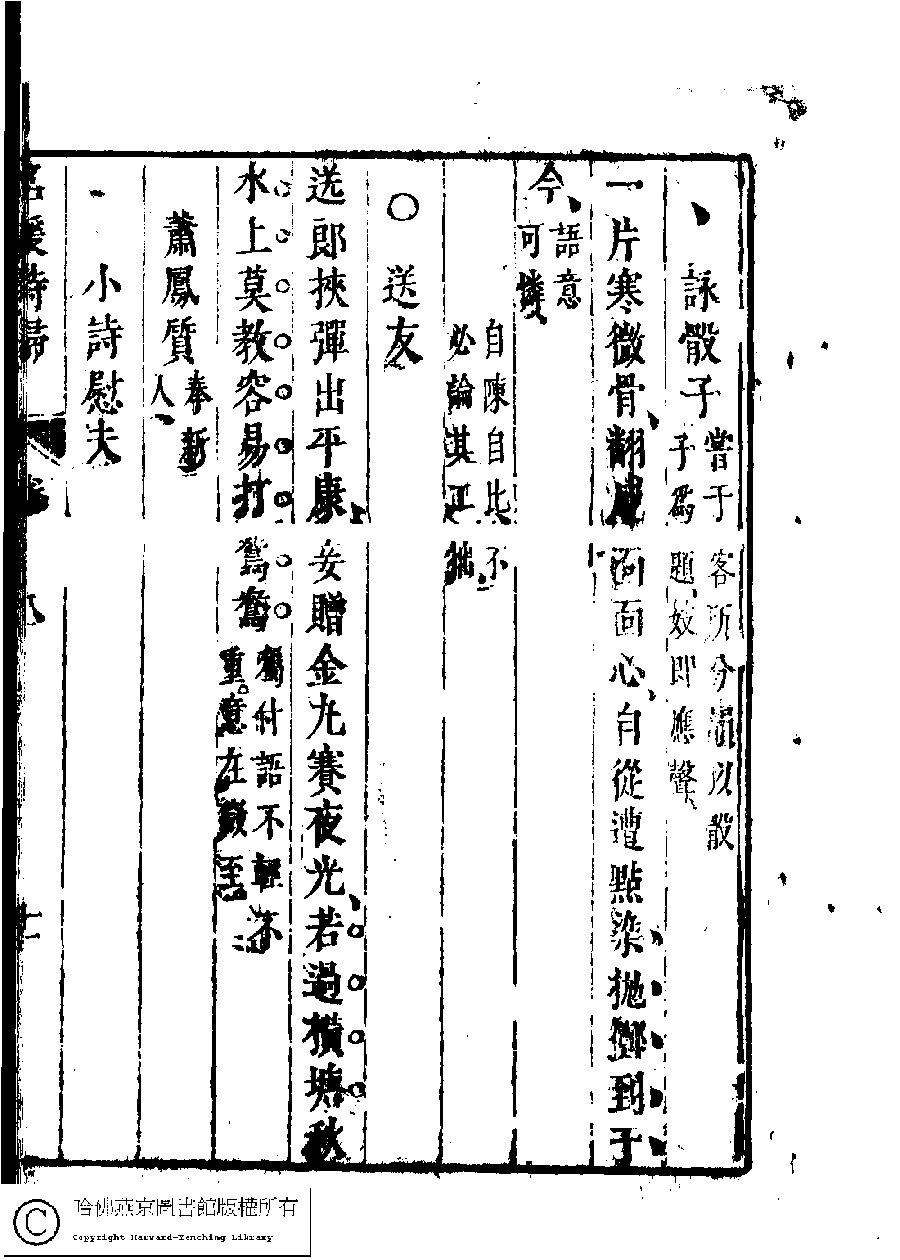 詠骰子 嘗于客所分韻以骰
子爲題妓卽應聲
一片寒微骨翻成面面心自從遭點染抛擲到于
今 語意
可憐
自陳自比不
必論其工拙
○送友
送郎挾彈出平康妾贈金丸賽夜光若過橫塘秋
水上莫教容易打鴛鴦 獨付語不輕不
重意在
蕭鳳質 奉新
人
小詩慰夫
名媛詩歸
哈佛燕京圖書館版權所有
Copyright Harvard-Yenching Library